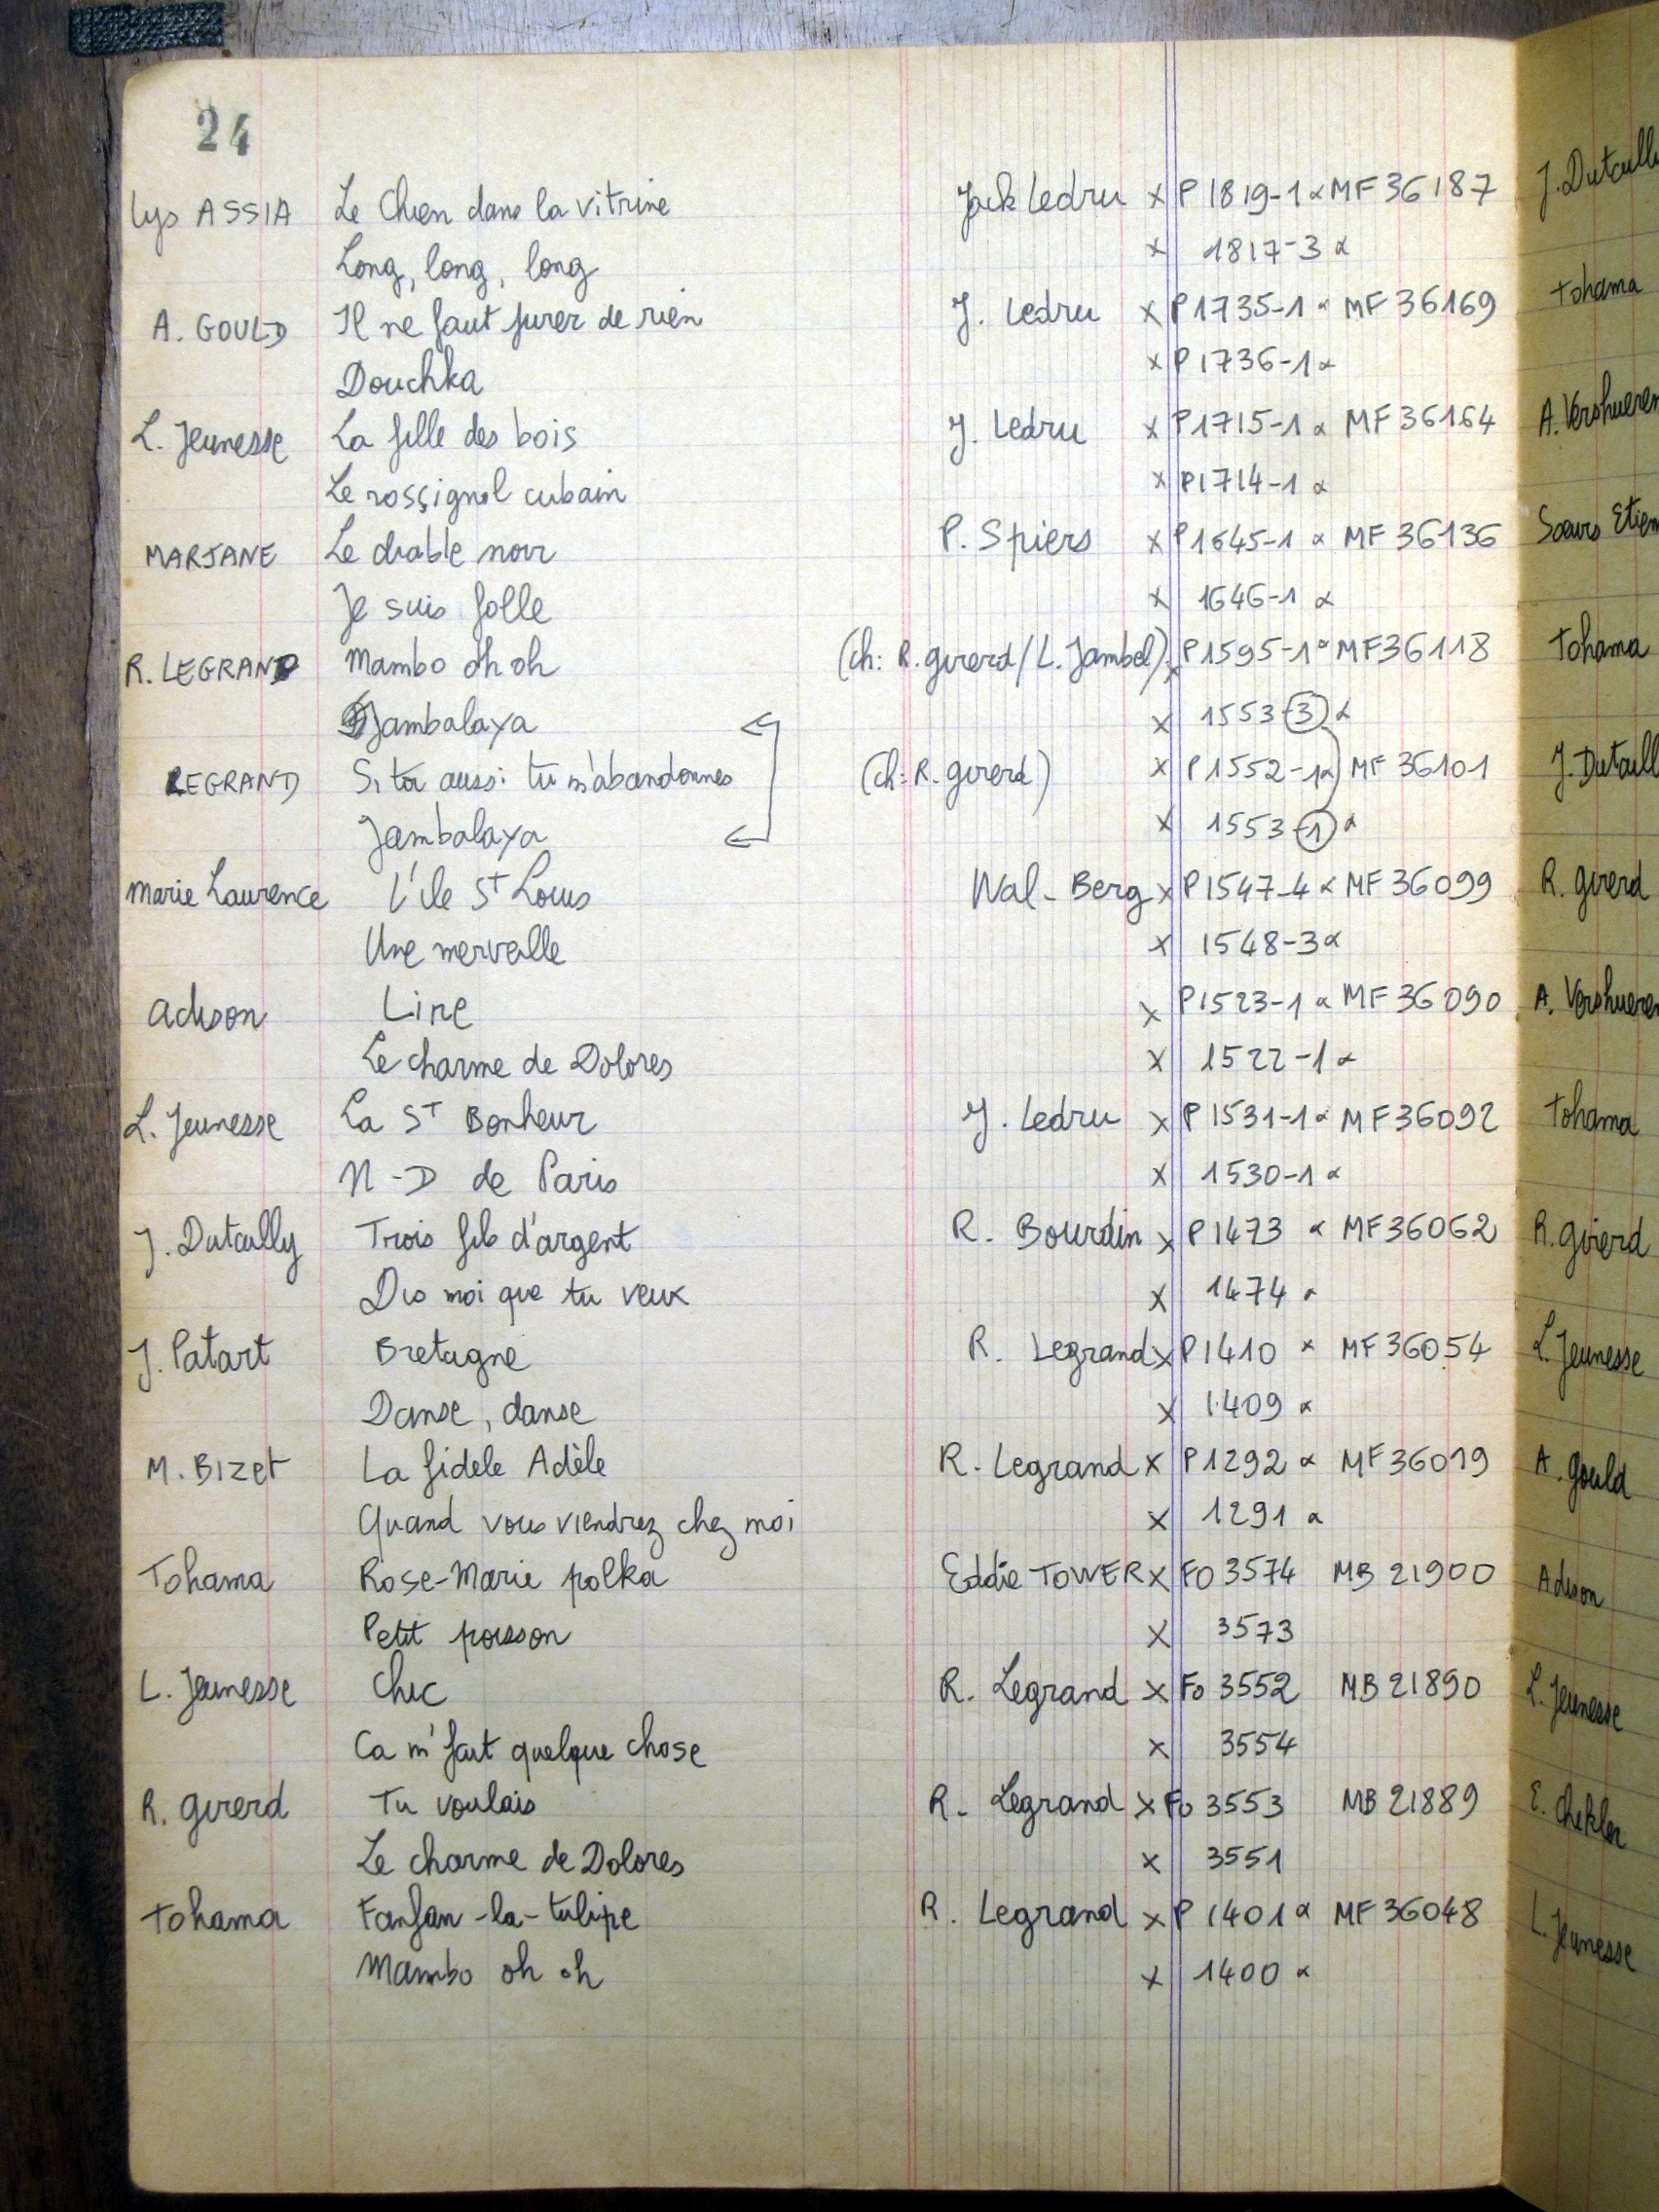 24
Lys ASSIA Le Chien dans la vitrine Jack Ledru x P 1819-1 α MF 36187
Long, long, long x 1817-3 α
A. GOULD Il ne faut jurer de rien J. Ledru x P1735-1 α MF 36169
Douchka x P1736-1 α
L. Jeunesse La fille des bois J. Ledru x P1715-1 α MF 36164
Le rossignol cubain x P1714-1 α
MARJANE Le diable noir P. Spiers x P1645-1 α MF 36136
Je suis folle x 1646-1 α
R. LEGRAND Mambo oh oh (ch: R. girerd / L. Jambel) x P1595-1 α MF36118
Jambalaya x 1553-3 α
LEGRAND Si toi aussi tu m'abandonnes (ch: R. girerd) x P1552-1 α MF 36101
Jambalaya x 1553-1 α
Marie Laurence L'île St Louis Wal-Berg x P1547-4 α MF 36099
Une merveille x 1548-3 α
Adison Line x P1523-1 α MF 36090
Le charme de Dolores x 1522-1 α
L. Jeunesse La St Bonheur J. Ledru x P 1531-1 α MF36092
N-D de Paris x 1530-1 α
J. Dutailly Trois fils d'argent R. Bourdin x P1473 α MF36062
Dis moi que tu veux x 1474 α
J. Patart Bretagne R. Legrand x P1410 α MF36054
Danse, danse x 1409 α
M. Bizet La fidele Adèle R. Legrand x P1292 α MF36019
Quand vous viendrez chez moi x 1291 α
Tohama Rose-Marie polka Eddie TOWER x FO 3574 MB 21900
Petit poisson x 3573
L. Jeunesse Chic R. Legrand x Fo 3552 MB 21890
Ca m'fait quelque chose x 3554
R. girerd Tu voulais R. Legrand x Fo 3553 MB 21889
Le charme de Dolores x 3551
Tohama Fanfan-la-tulipe R. Legrand x P 1401 α MF 36048
Mambo oh oh x 1400 α
J. Dutailly
Tohama
A. Vershueren
Soeurs Etien
Tohama
J. Dutaill
R. girerd
A. Vershueren
Tohama
R. girerd
L. Jeunesse
A. gould
Adison
L. Jeunesse
E. Chekler
L. Jeunesse